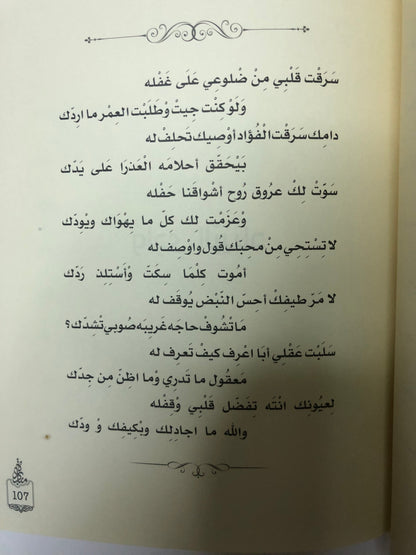 سَرَقْت قَلْبِي مِنْ ضْلُوعِي عَلَى غَفْله
وَلَوْ كِنْت جِيتْ وُطَلَبْت العِمْر ما ارِدّك
دامِك سَرَقْت الْفُؤاد أوْصِيك تَحلِف له
بَيْحَقّق أحلامَه الْعَذرا عَلى يَدّك
سَوّتْ لِكْ عِروق رُوح أشْواقنا حَفْله
وْعَزمَت لك كلّ ما يهْواك وِيْودّك
لا تِسْتِحِي مِنْ محبك قُول واوْصِف له
أمُوت كِلْمَا سِكَتّ وَأسْتِلذ رَدّك
لا مَرّ طيفِك أحِسّ النّبْض يُوقَف له
مَا تْشُوف حاجِه غَريبَه صُوبي تْشدّك؟
سَلَبْت عَقْلي أبَا اعْرف كيفْ تَعرِف له
مَعقُول ما تدري وْما اظِنّ مِن جِدّك
لِعيُونِك انْتَه تِفَضّل قَلْبِي وِقِفْله
والله ما اجادِلك وبْكيفِك وْ ودّك
107